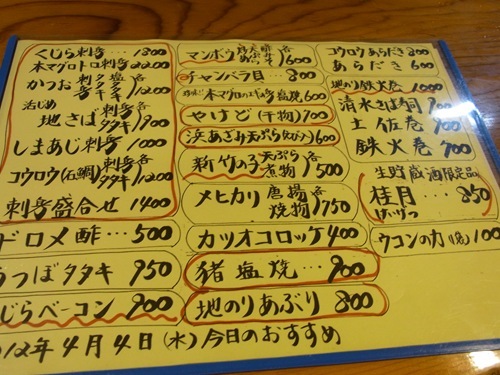 くじら刺身…1800
本マグロトロ刺身 2200
かつお 刺身 タタキ 塩タタキ 各1200
活じめ 地さば 刺身 タタキ 各900
しまあじ刺身 1000
コウロウ(石鯛) 刺身 タタキ 各1200
刺身盛合せ 1400
ドロメ酢…500
うつぼタタキ 950
じらベーコン 900
マンボウ 各600
チャンバラ貝…800
本マグロ 塩焼 600
やけど(干物) 700
浜あざみ天ぷら 600
新竹の子 天ぷら 煮物 各500
メヒカリ 唐揚 焼物 各750
カツオコロッケ 400
猪塩焼…900
地のりあぶり 800
コウロウあらだき 800
あらだき 600
地のり鉄火巻 1000
清水さば 900
土佐巻 900
鉄火巻 700
生貯蔵酒限定品
桂月…850
けいげつ
ウコンの力 100
012年4月4日(水)今日のおすすめ